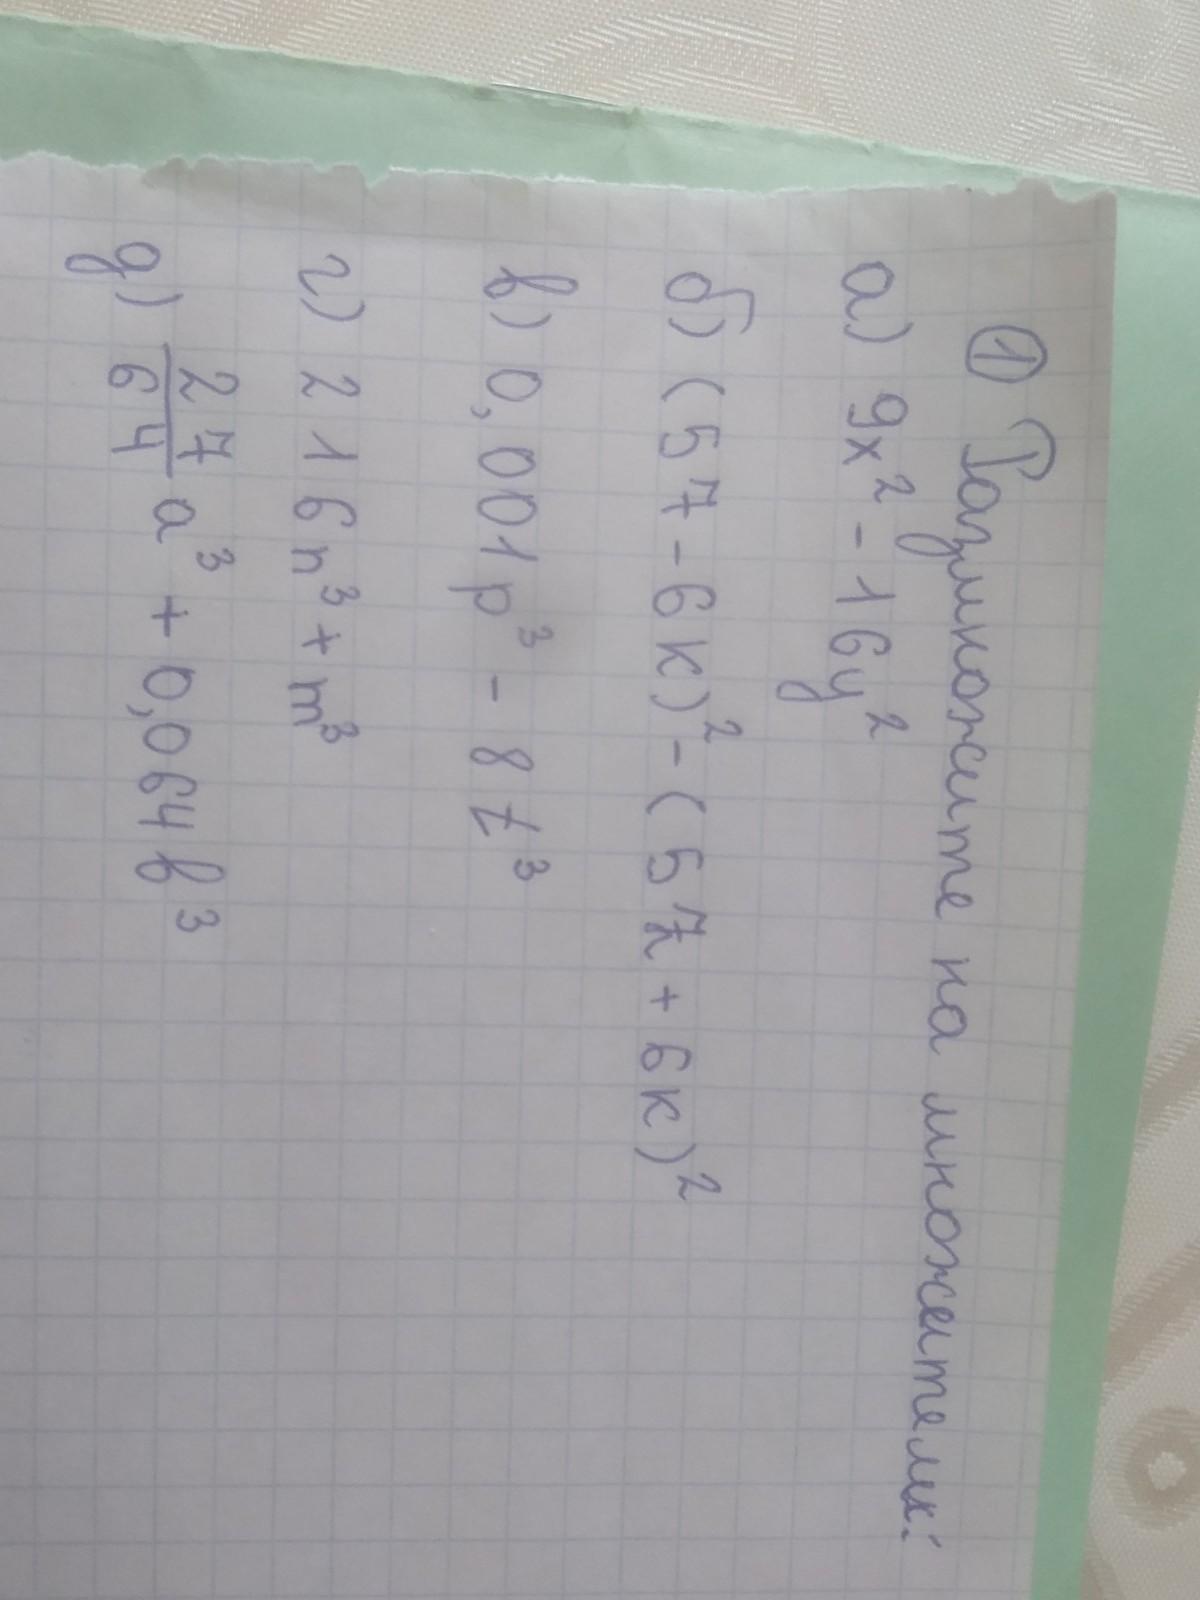 ① Размножите на множители:
а) 9x² - 16y²
б) (57 - 6к)² - (57 + 6к)²
в) 0,001p³ - 8t³
г) 216n³ + m³
д) 27/64 a³ + 0,064 b³